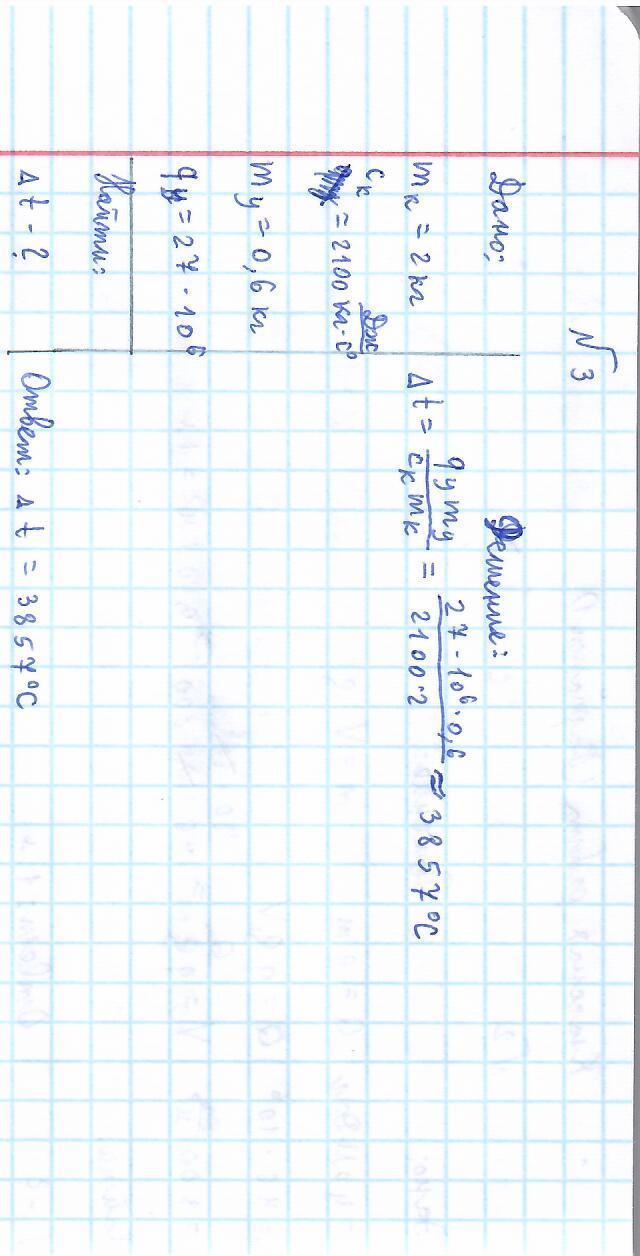 № 3
Дано:
Решение:
mк = 2 кг
cк = 2100 Дж/кг·c°
mу = 0,6 кг
qу = 27 · 10⁶
Найти:
Δt - ?
Δt = qуmу/cкmк = 27 · 10⁶ · 0,6/2100·2 ≈ 3857°C
Ответ: Δt = 3857°C